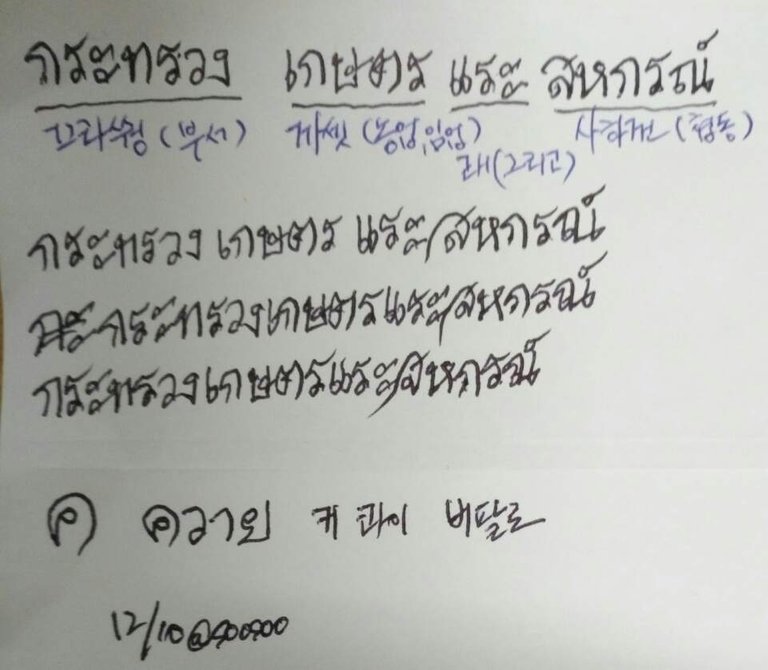 กระทรวง เกษตร แระ สหกรณ์
끄라수엉 (부서) 까셋 (농업,임업) 사하껀 (협동)
래(그리고)
กระทรวง เกษตร แระ/สหกรณ์
กระทรวงเกษตรแระ/สหกรณ์
กระทรวงเกษตรแระ/สหกรณ์
ค ควาย 커 콰이 버팔로
12/10